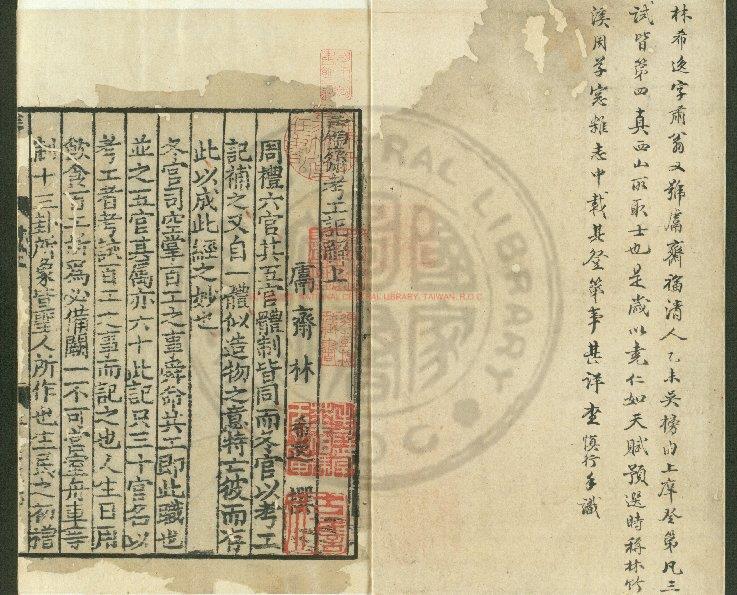 林希逸字肅翁又號鬳齋福清人乙未吳榜由上庠登第凡三
試皆第四真西山所取士也是歲以堯仁如天賦預選時稱林竹
溪周草窻雜志中載其登第事甚詳 慎行手識
鬳齋考工記解上
鬳齋林希逸撰
周禮六官其五官體制皆同而冬官以考工
記補之又自一體似造物之意特亡彼而存
此以成此經之妙也
冬官司空掌百工之事舜命共工即此職也
並之五官其屬亦六十此記只三十官名以
考工者考試百工之事而記之也人生日用
飲食百工皆為必備闕一不可宮室舟車等
制十三卦所象皆聖人所作也生民之初
NATIONAL CENTRAL LIBRARY, TAIWAN, R.O.C